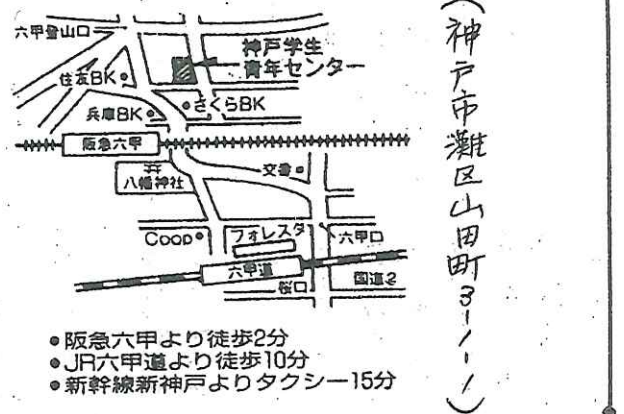 六甲登山口
神戸学生
青年センター
住友BK
兵庫BK
さくらBK
阪急六甲
八幡神社
交番
Coop
フォレスタ
六甲口
六甲道
桜口
国道2
●阪急六甲より徒歩2分
●JR六甲道より徒歩10分
●新幹線新神戸よりタクシー15分
(神戸市灘区山田町3-1-1)